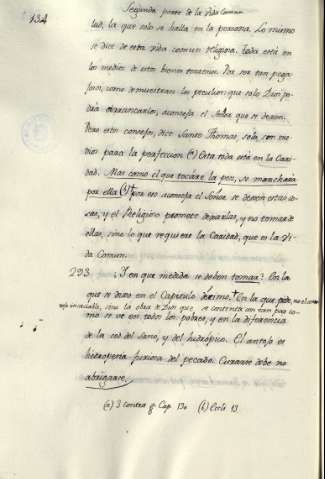 134
Segunda parte de la Vida Comun
lud, la que solo se halla en la persona. Lo mismo
se dice de esta vida comun Religiosa. Toda está en
los medios de estos bienes terrenos. Por ser tan pega
josos, como demuestran los peculios que solo Dios po
día arrancarlos, aconseja el Señor que se dexen.
Pero esto consejos, dice Santo Thomas, solo son me
dios para la perfeccion (a) Esta toda está en la Cari
dad. Mas como el que tocáre la pez, se manchará
por ella (b) por eso aconseja el Señor se dexen estas co
sas, y el Religioso promete dexarlas, y no tomar de
ellas, sino lo que requiere la Caridad, que es la Vi
da Comun.
293. Y en que medida se deben tomar? En la
que se dixo en el Capitulo decimo. En la que pide, no el
invaluable, sino la obra de Dios que se contenta con tan poco
mo se ve en todos los pobres, y en la diferencia
de la sed del sano, y del hidropico. El antojo es
hidropesia furiosa del pecado. Curarse debe no
abrigarse.
(a) 3 contra g. Cap. 130 (b) Eccli 13.